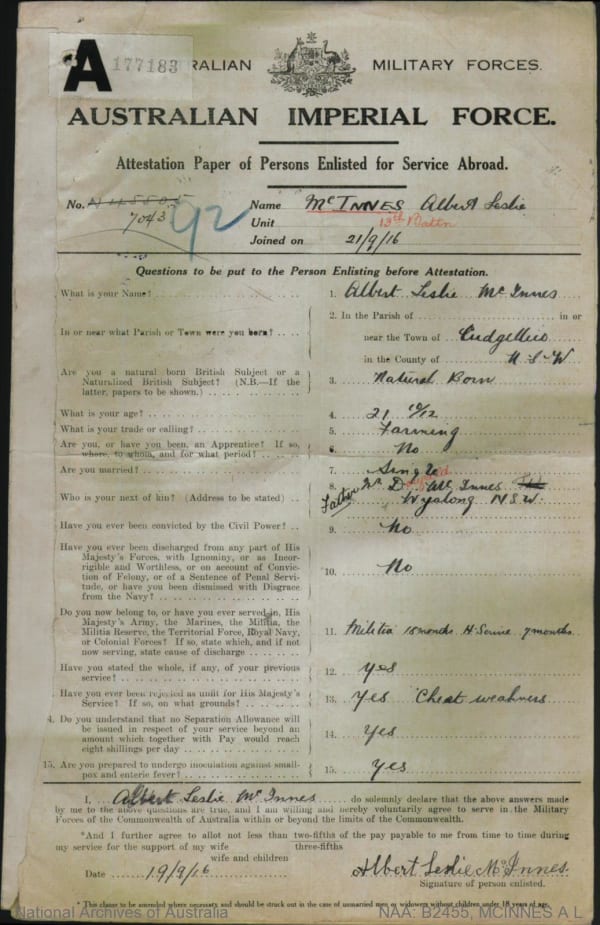 A 177183
RALIAN MILITARY FORCES.
AUSTRALIAN IMPERIAL FORCE.
Attestation Paper of Persons Enlisted for Service Abroad.
No. 7043 92
Name McINNES Albert Leslie
Unit 13th Battn
Joined on 21/9/16
Questions to be put to the Person Enlisting before Attestation.
What is your Name? 1. Albert Leslie McInnes
In or near what Parish or Town were you born? 2. In the Parish of in or
near the Town of Cudgellico
in the County of N.S.W
Are you a natural born British Subject or a
Naturalized British Subject? (N.B.—If the
latter, papers to be shown.) 3. Natural Born
What is your age? 4. 21 10/12
What is your trade or calling? 5. Farming
Are you, or have you been, an Apprentice? If so,
where, to whom, and for what period? 6. No
Are you married? 7. Single
Who is your next of kin? (Address to be stated) 8. Father Mr D. McInnes
Wyalong NSW
Have you ever been convicted by the Civil Power? 9. No
Have you ever been discharged from any part of His
Majesty's Forces, with Ignominy, or as Incor-
rigible and Worthless, or on account of Convic-
tion of Felony, or of a Sentence of Penal Servi-
tude, or have you been dismissed with Disgrace
from the Navy? 10. No
Do you now belong to, or have you ever served in, His
Majesty's Army, the Marines, the Militia, the
Militia Reserve, the Territorial Force, Royal Navy,
or Colonial Forces? If so, state which, and if not
now serving, state cause of discharge 11. Militia 18 months. H. Servie 7 months
Have you stated the whole, if any, of your previous
service? 12. Yes
Have you ever been rejected as unfit for His Majesty's
Service? If so, on what grounds? 13. Yes Chest weakness
4. Do you understand that no Separation Allowance will
be issued in respect of your service beyond an
amount which together with Pay would reach
eight shillings per day 14. Yes
15. Are you prepared to undergo inoculation against small-
pox and enteric fever? 15. Yes
I, Albert Leslie McInnes do solemnly declare that the above answers made
by me to the above questions are true, and I am willing and hereby voluntarily agree to serve in the Military
Forces of the Commonwealth of Australia within or beyond the limits of the Commonwealth.
*And I further agree to allot not less than two-fifths of the pay payable to me from time to time during
my service for the support of my wife three-fifths
wife and children
Date 19/9/16 Albert Leslie McInnes.
Signature of person enlisted.
* This clause to be amended where necessary and should be struck out in the case of unmarried men or widowers without children under 18 years of age.
National Archives of Australia NAA: B2455, MCINNES A L